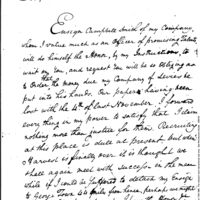 Ensign Campbell Smith of my Company,
whom I value much as an Officer of promising Talents
will do himself the Honor, by my Instructions, to
wait on you, and request you will be so obliging as
to Order the money due my Company of Levies be
put into his hands. Our papers having been
lost with the 4th of last November. I have
every thing in my power to satisfy that I claim
nothing more than justice for them. Recruiting
at this place is dull at present, but when
Harvest is finally over it is thought we
shall again meet with success. In the mean
while if I could be permitted to detach my Ensign
to George Town 40 miles from here, perhaps we might
the Honor to